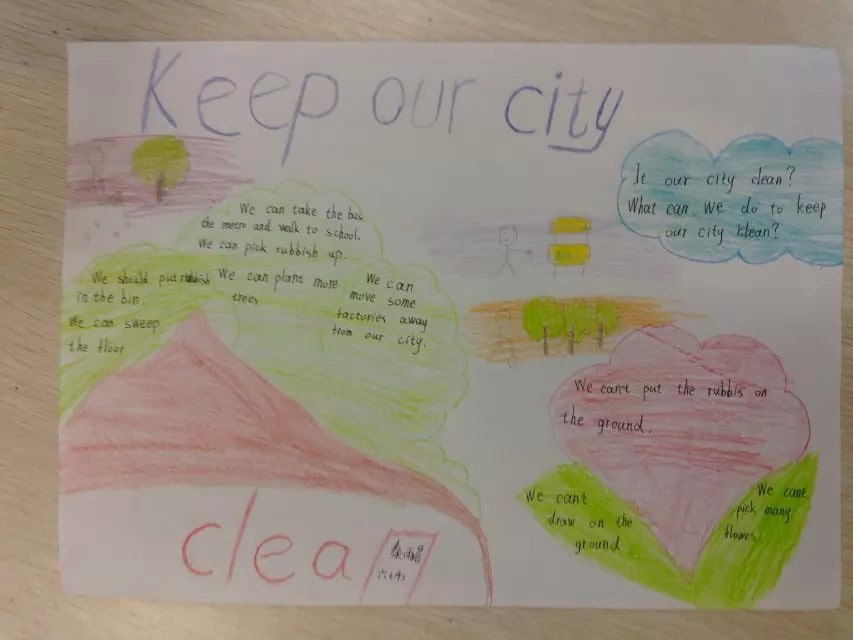 Keep our city
It our city clean?
What can we do to keep
our city klean?
We can take the bus
the metro and walk to school.
We can pick rubbish up.
We should put rubbish
in the bin.
We can sweep
the floor
We can plant more
trees
We can
move some
factories away
from our city.
We can't put the rubbis on
the ground.
We can't
draw on the
ground
We can't
pick many
flowes
clea
六(4)